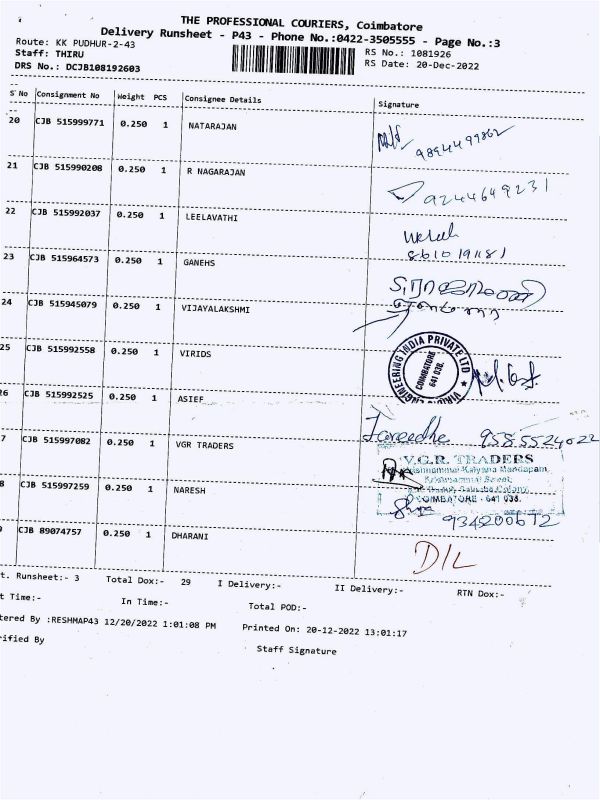 THE PROFESSIONAL COURIERS, Coimbatore
Delivery Runsheet - P43 - Phone No.:0422-3505555 - Page No.:3
Route: KK PUDHUR-2-43
RS No.: 1081926
Staff: THIRU
RS Date: 20-Dec-2022
DRS No.: DCJB108192603
S No Consignment No Weight PCS Consignee Details Signature
20 CJB 515999771 0.250 1 NATARAJAN
9894499862
21 CJB 515990208 0.250 1 R NAGARAJAN
9244649231
22 CJB 515992037 0.250 1 LEELAVATHI
8610191181
23 CJB 515964573 0.250 1 GANEHS
24 CJB 515945079 0.250 1 VIJAYALAKSHMI
25 CJB 515992558 0.250 1 VIRIDS
ENGINEERING INDIA PRIVATE LTD
COIMBATORE
641 038.
26 CJB 515992525 0.250 1 ASIEF
Fareedhe 9585524022
7 CJB 515997082 0.250 1 VGR TRADERS
V.G.R. TRADERS
Kalyana Mandapam,
COIMBATORE - 641 038.
8 CJB 515997259 0.250 1 NARESH
CJB 89074757 0.250 1 DHARANI
D/L
t. Runsheet:- 3 Total Dox:- 29 I Delivery:- II Delivery:- RTN Dox:-
t Time:- In Time:- Total POD:-
tered By :RESHMAP43 12/20/2022 1:01:08 PM Printed On: 20-12-2022 13:01:17
rified By Staff Signature